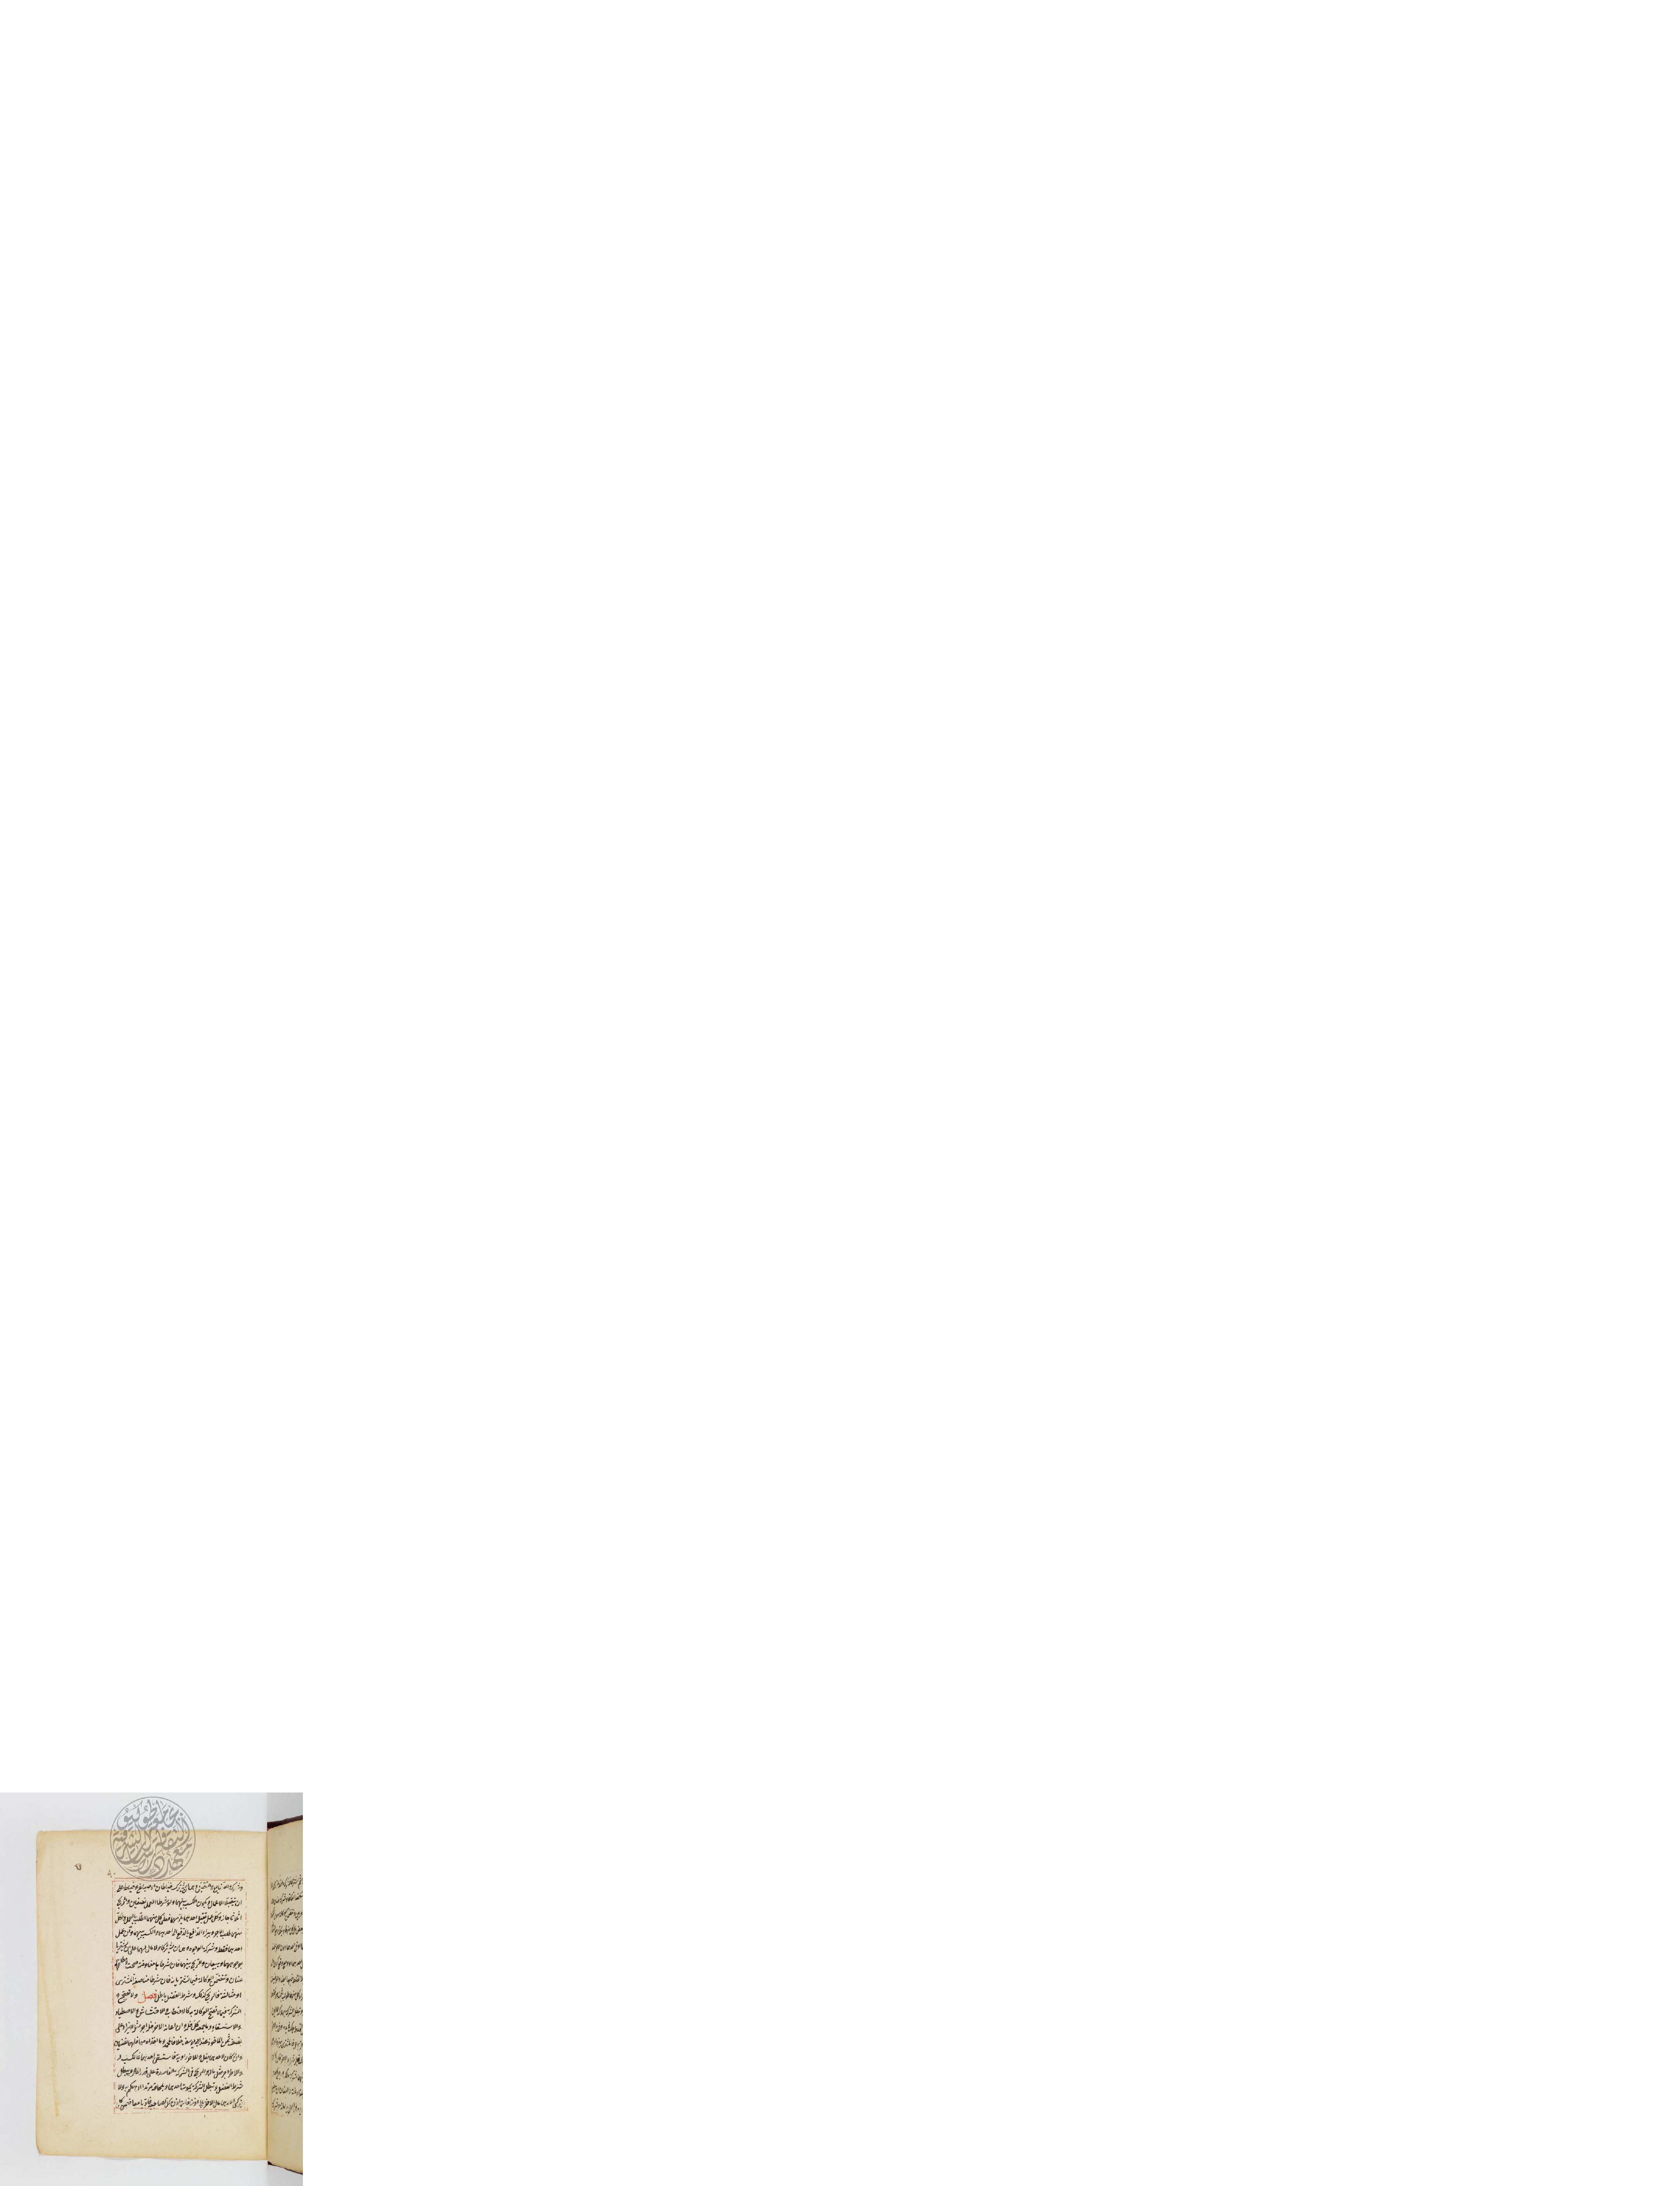 وشركة الصنايع والتقبل وهي ان يشترك خياطان او صباغ وخياط على
ان يتقبلا الاعمال ويكون الكسب بينهما ولو شرطا العمل نصفين والربح
اثلاثا جاز وكل عمل تقبله احدهما يلزمهما فعلى كل منهما الطلب بالعمل ولكل
منهما طلب الاجر ويبرأ الدافع بالدفع الى احدهما والكسب بينهما وان عمل
احدهما فقط وشركة الوجوه وهي ان يشتركا ولا مال لهما على ان يشتريا
بوجوههما ويبيعا والربح بينهما فان شرطاها مفاوضة صحت ومطلقها
عنان وتتضمن الوكالة فيما اشترياه فان شرطا مناصفة المشترى
او مثالثته فالربح كذلك وشرط الفضل باطل فصل ولا تصح
الشركة فيما لا تصح الوكالة به كالاحتطاب والاحتشاش والاصطياد
والاستقاء وما جمعه كل فله وان اعانه الاخر فله اجر مثله لا يزاد على
نصف ثمن المأخوذ عند ابي يوسف خلافا لمحمد وما اخذاه معا فلهما نصفين
وان كان لاحدهما بغل وللاخر راوية فاستقى احدهما فالكسب له
وللاخر اجر مثل ماله والربح في الشركة الفاسدة على قدر المال ويبطل
شرط الفضل وتبطل الشركة بموت احدهما وبلحاقه مرتدا ان حكم به ولا
يزكي احدهما مال الاخر بلا اذنه فان اذن كل لصاحبه فاديا معا ضمن كل